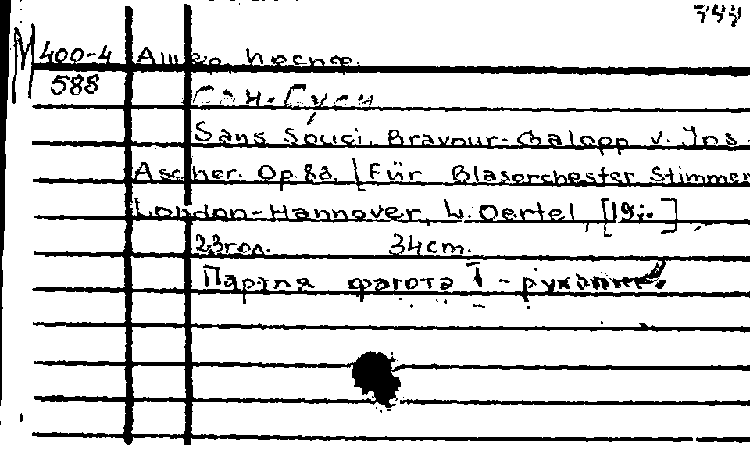 М 400-4 Ашер, Жозеф.
588
Сан-Суси
Sans Souci. Bravour-Galopp v. Jos.
Ascher. Op. 83. [Für Blasorchester Stimmen
London-Hannover, L. Oertel, [19..]
23гол. 34cm.
Партия фагота I - рукопис.